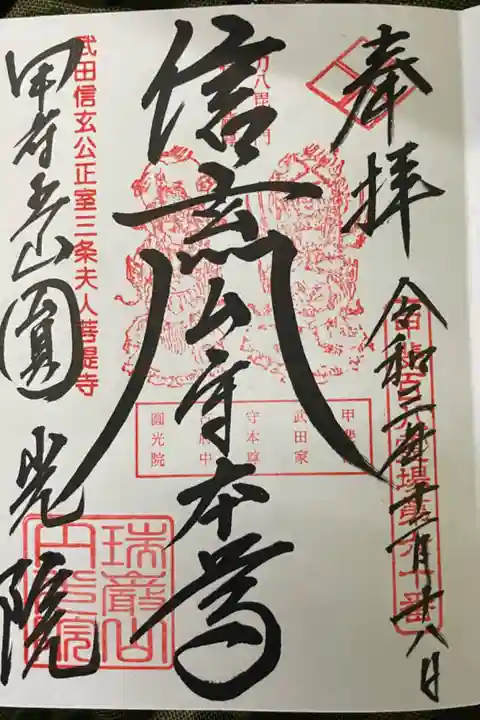 奉拝
令和三年十一月十八日
信玄公守本尊
甲府五山圓光院
武田信玄公正室三条夫人菩提寺
武田家
守本尊
府中
圓光院
瑞巌山
円光院